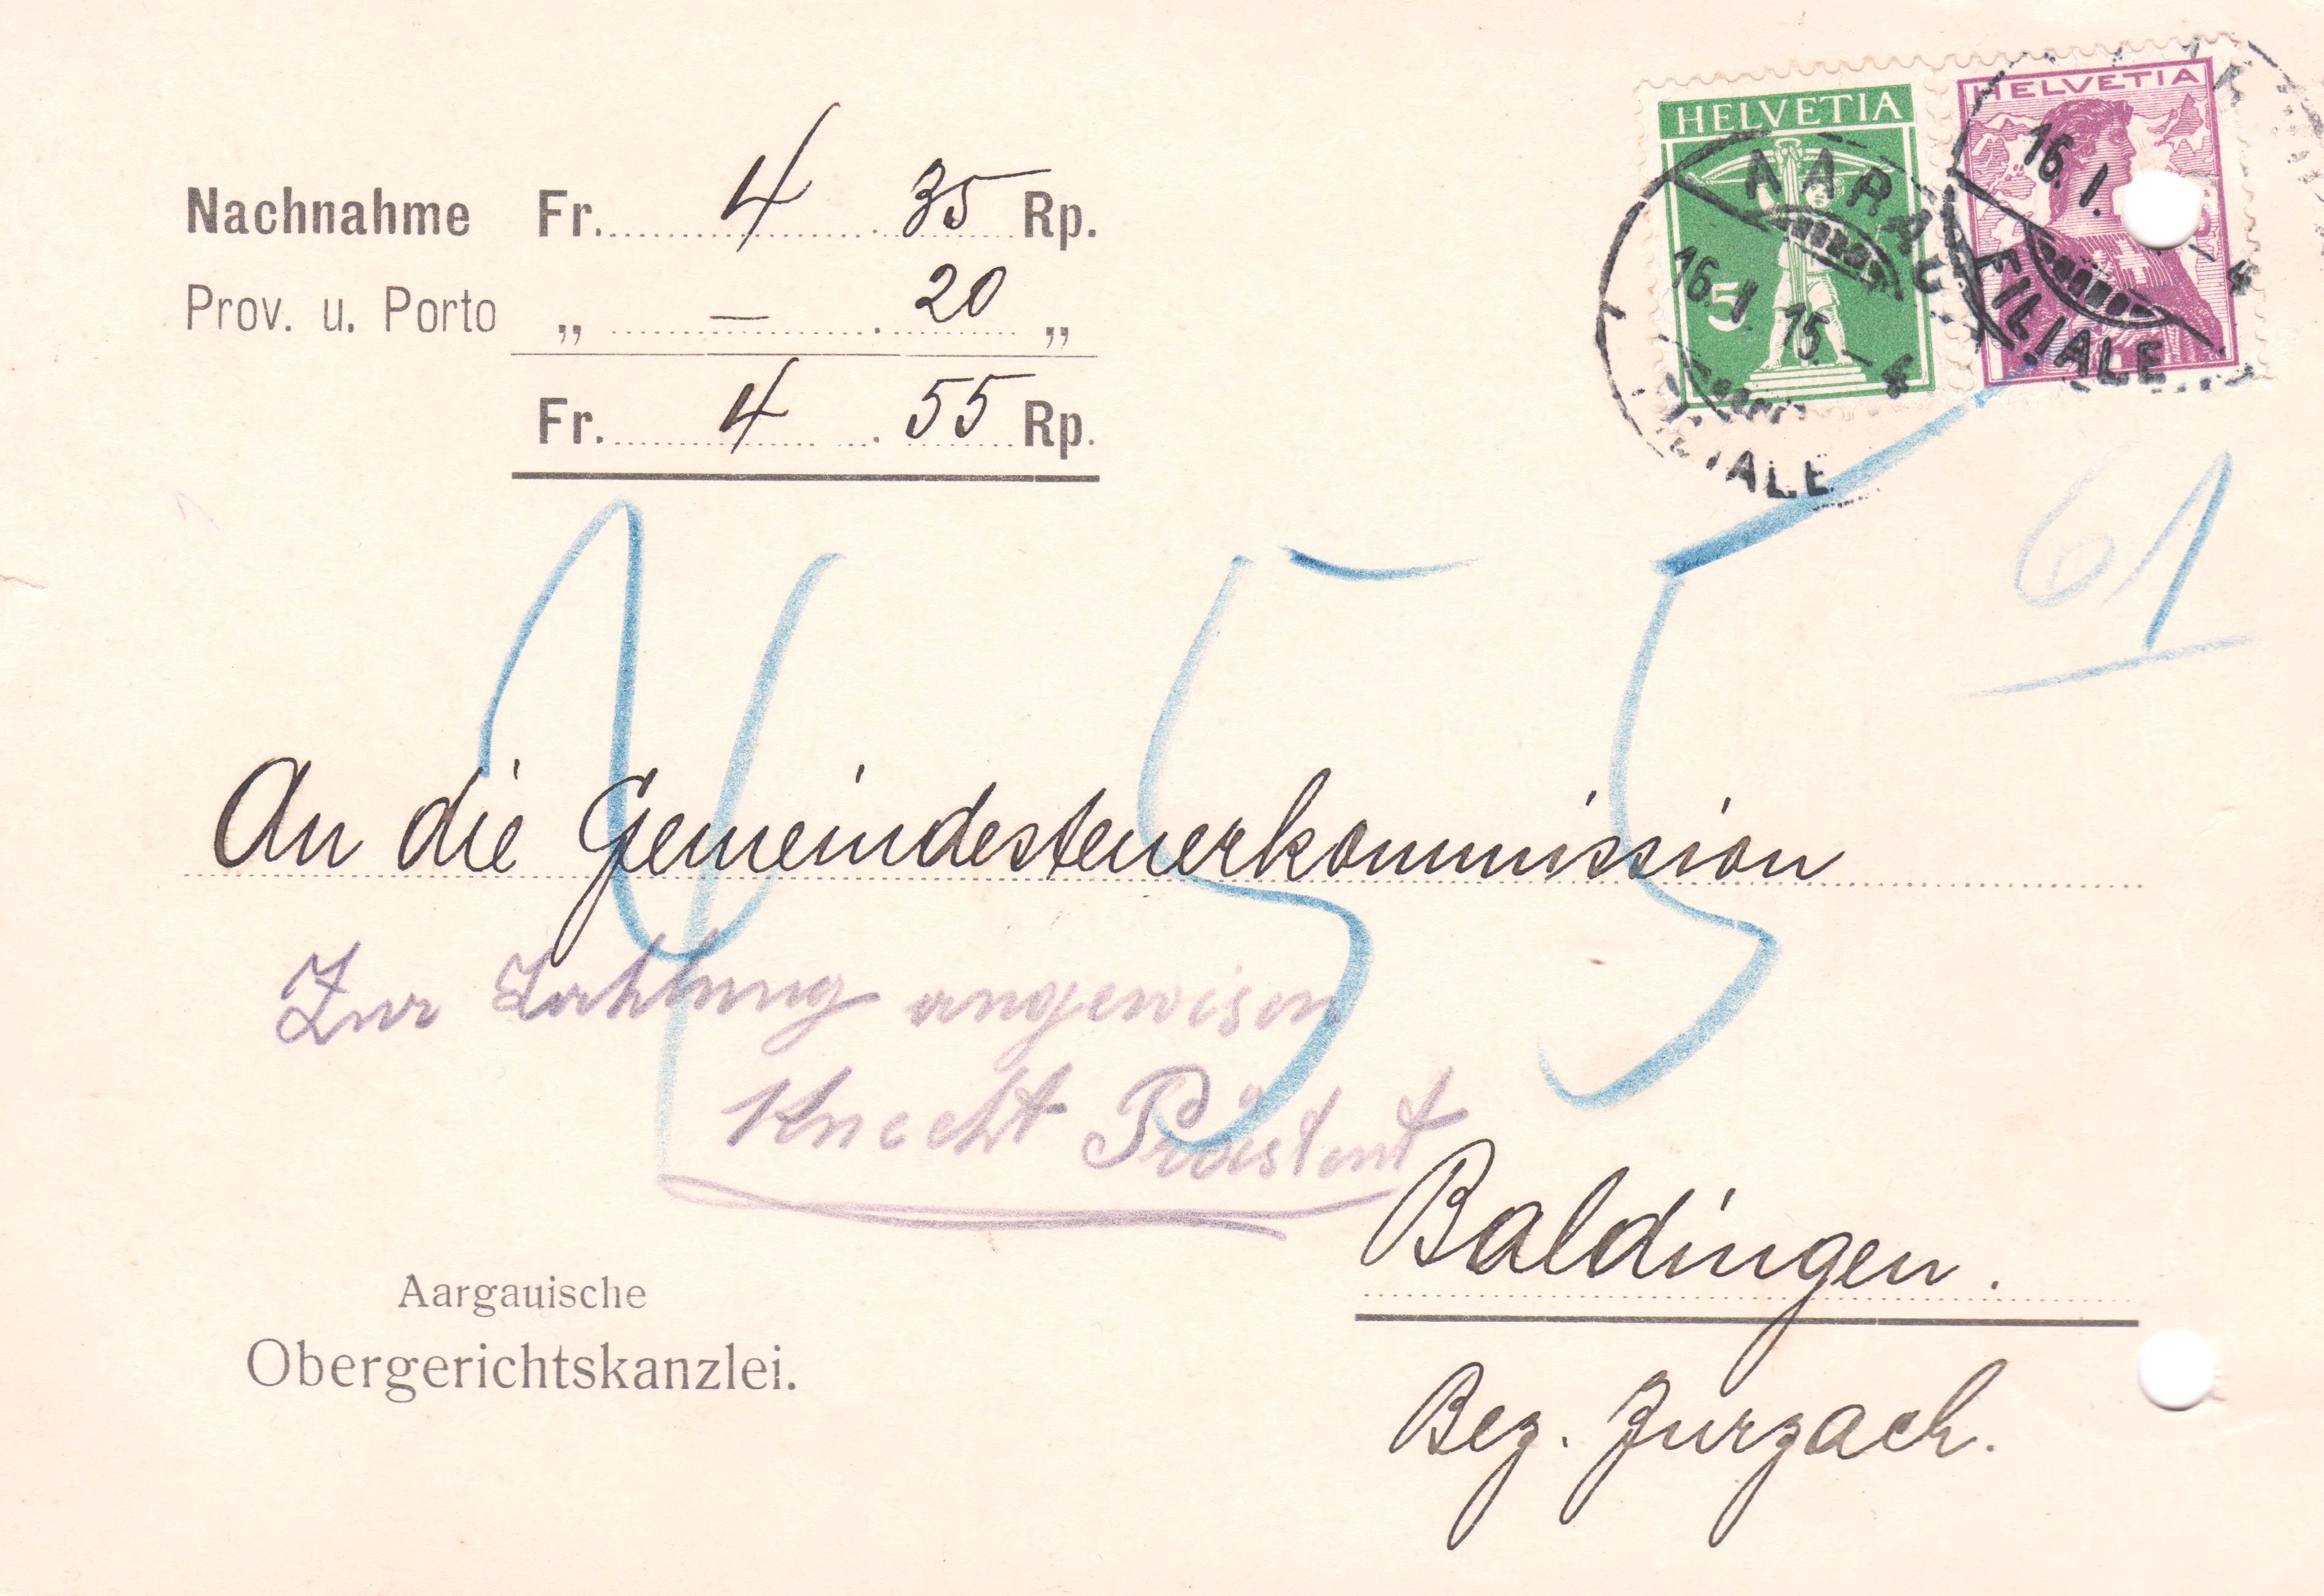 Nachnahme Fr. 4 35 Rp.
Prov. u. Porto „ — 20 „
Fr. 4 55 Rp.
HELVETIA
5
AARAU
16. I. 15. – 4
FILIALE
HELVETIA
16. I. – 4
FILIALE
61
4 55
An die Gemeindesteuerkommission
Zur Zahlung angewisen
Knecht Präsident
Baldingen.
Bez. Zurzach.
Aargauische
Obergerichtskanzlei.